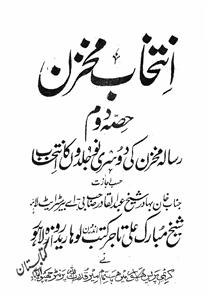 انتخاب مخزن
حصہ دوم
رسالہ مخزن کی دوسری نو جلدوں کا انتخاب
حسب اجازت
جناب خان بہادر شیخ عبدالقادر صاحب بی اے بیرسٹر ایٹ لا
شیخ مبارک علی تاجر کتب اندرون لوہاری دروازہ لاہور
نے